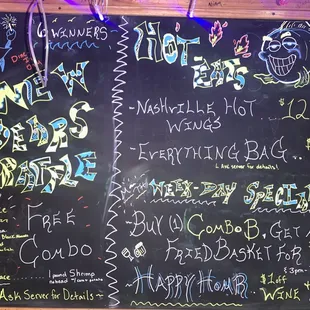 6 WINNERS
NEW
YEARS
RAFFLE
FREE
COMBO
1 pound Shrimp
Ask Server for Details
HOT
EATS
- NASHVILLE HOT
WINGS
$12
- EVERYTHING BAG..
Ask server for details!
WEEK-DAY SPECIAL
- BUY (1) COMBO B, GET
FRIED BASKET FOR
3pm
HAPPY HOUR
$1 off
WINE